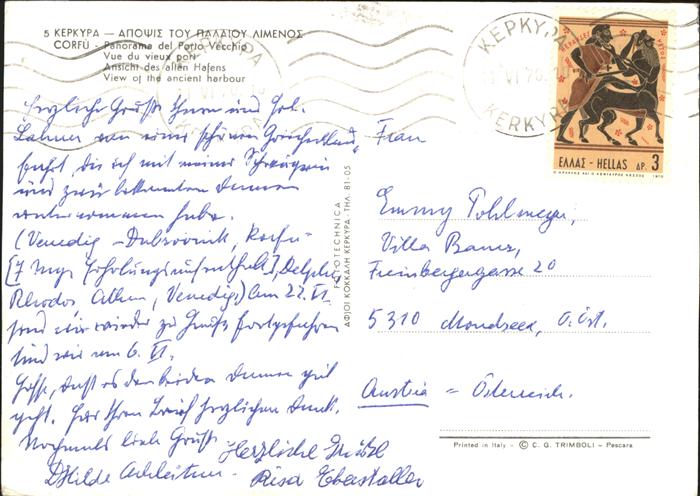 5 ΚΕΡΚΥΡΑ — ΑΠΟΨΙΣ ΤΟΥ ΠΑΛΑΙΟΥ ΛΙΜΕΝΟΣ
CORFÙ - Panorama del Porto Vecchio
Vue du vieux port
Ansicht des alten Hafens
View of the ancient harbour
ΚΕΡΚΥΡΑ
ΚΕΡΚΥΡΑ
VI 76
KERKYRA
ΕΛΛΑΣ - HELLAS ΔΡ. 3
1970
Herzliche Grüße Ihnen und
von einer schönen Griechenland
fahrt, die ich mit meiner Schwägerin
und zwei bekannten Damen
unternommen habe.
(Venedig - Dubrovnik, Korfu -
[7 Tage Erholungsaufenthalt], Delphi,
Rhodos, Athen, Venedig.) Am 22. VI.
sind wir wieder zu Hause, fortgefahren
sind wir am 6. VI.
Hoffe, daß es den beiden Damen gut
geht. Für Ihren Brief herzlichen Dank.
Nochmals liebe Grüße
Hilde
Herzliche Grüße
Resa Eberstaller
FOTOTECHNICA
ΑΦΙΟΙ ΚΟΚΚΑΛΗ ΚΕΡΚΥΡΑ - ΤΗΛ. 81-05
Frau
Emmy Pohlmeyer,
Villa
Freinbergergasse 20
5310 Mondsee, O.Öst.
Austria = Österreich.
Printed in Italy - © C. G. TRIMBOLI - Pescara